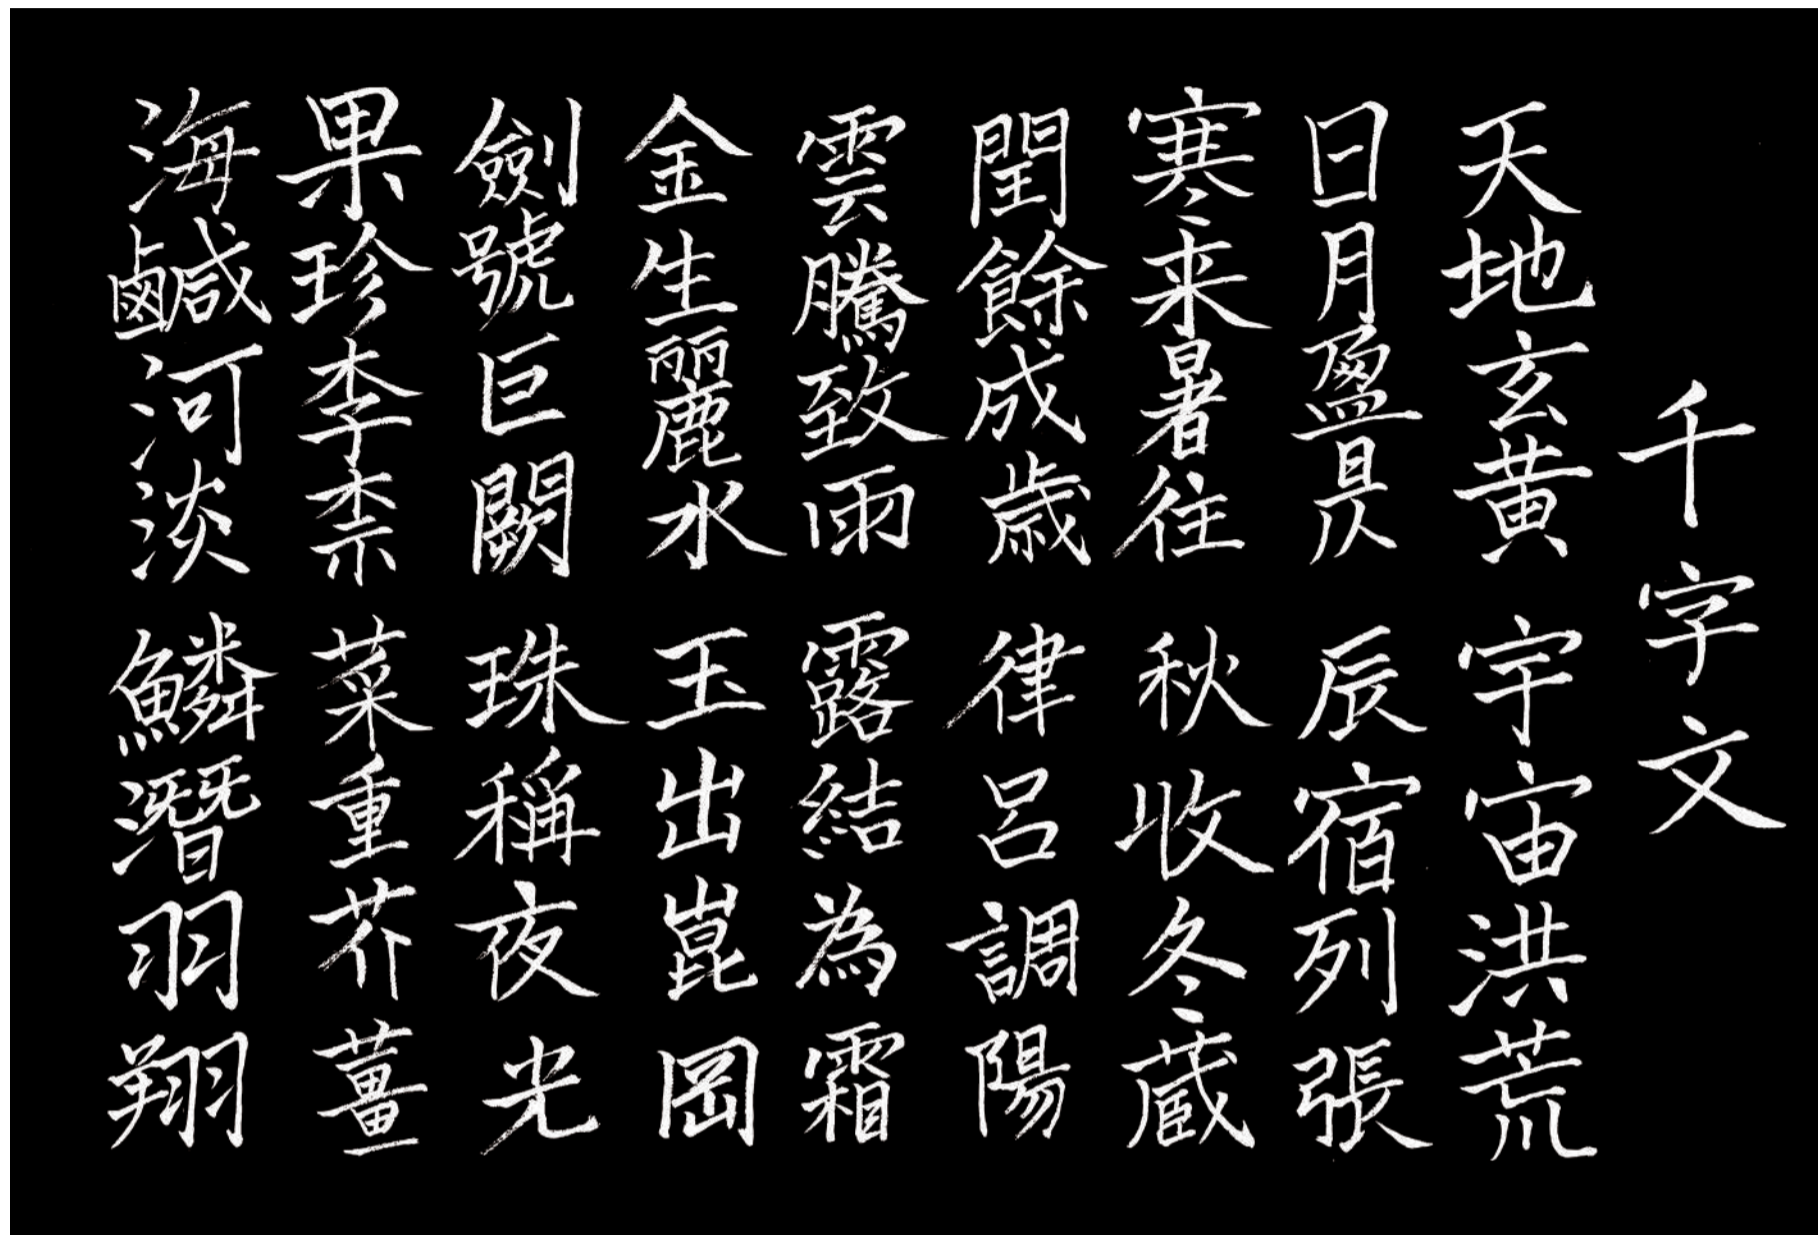 千字文
天地玄黄宇宙洪荒
日月盈昃辰宿列張
寒来暑往秋収冬蔵
閏餘成歳律呂調陽
雲騰致雨露結為霜
金生麗水玉出崑岡
劍號巨闕珠稱夜光
果珍李柰菜重芥薑
海鹹河淡鱗潛羽翔